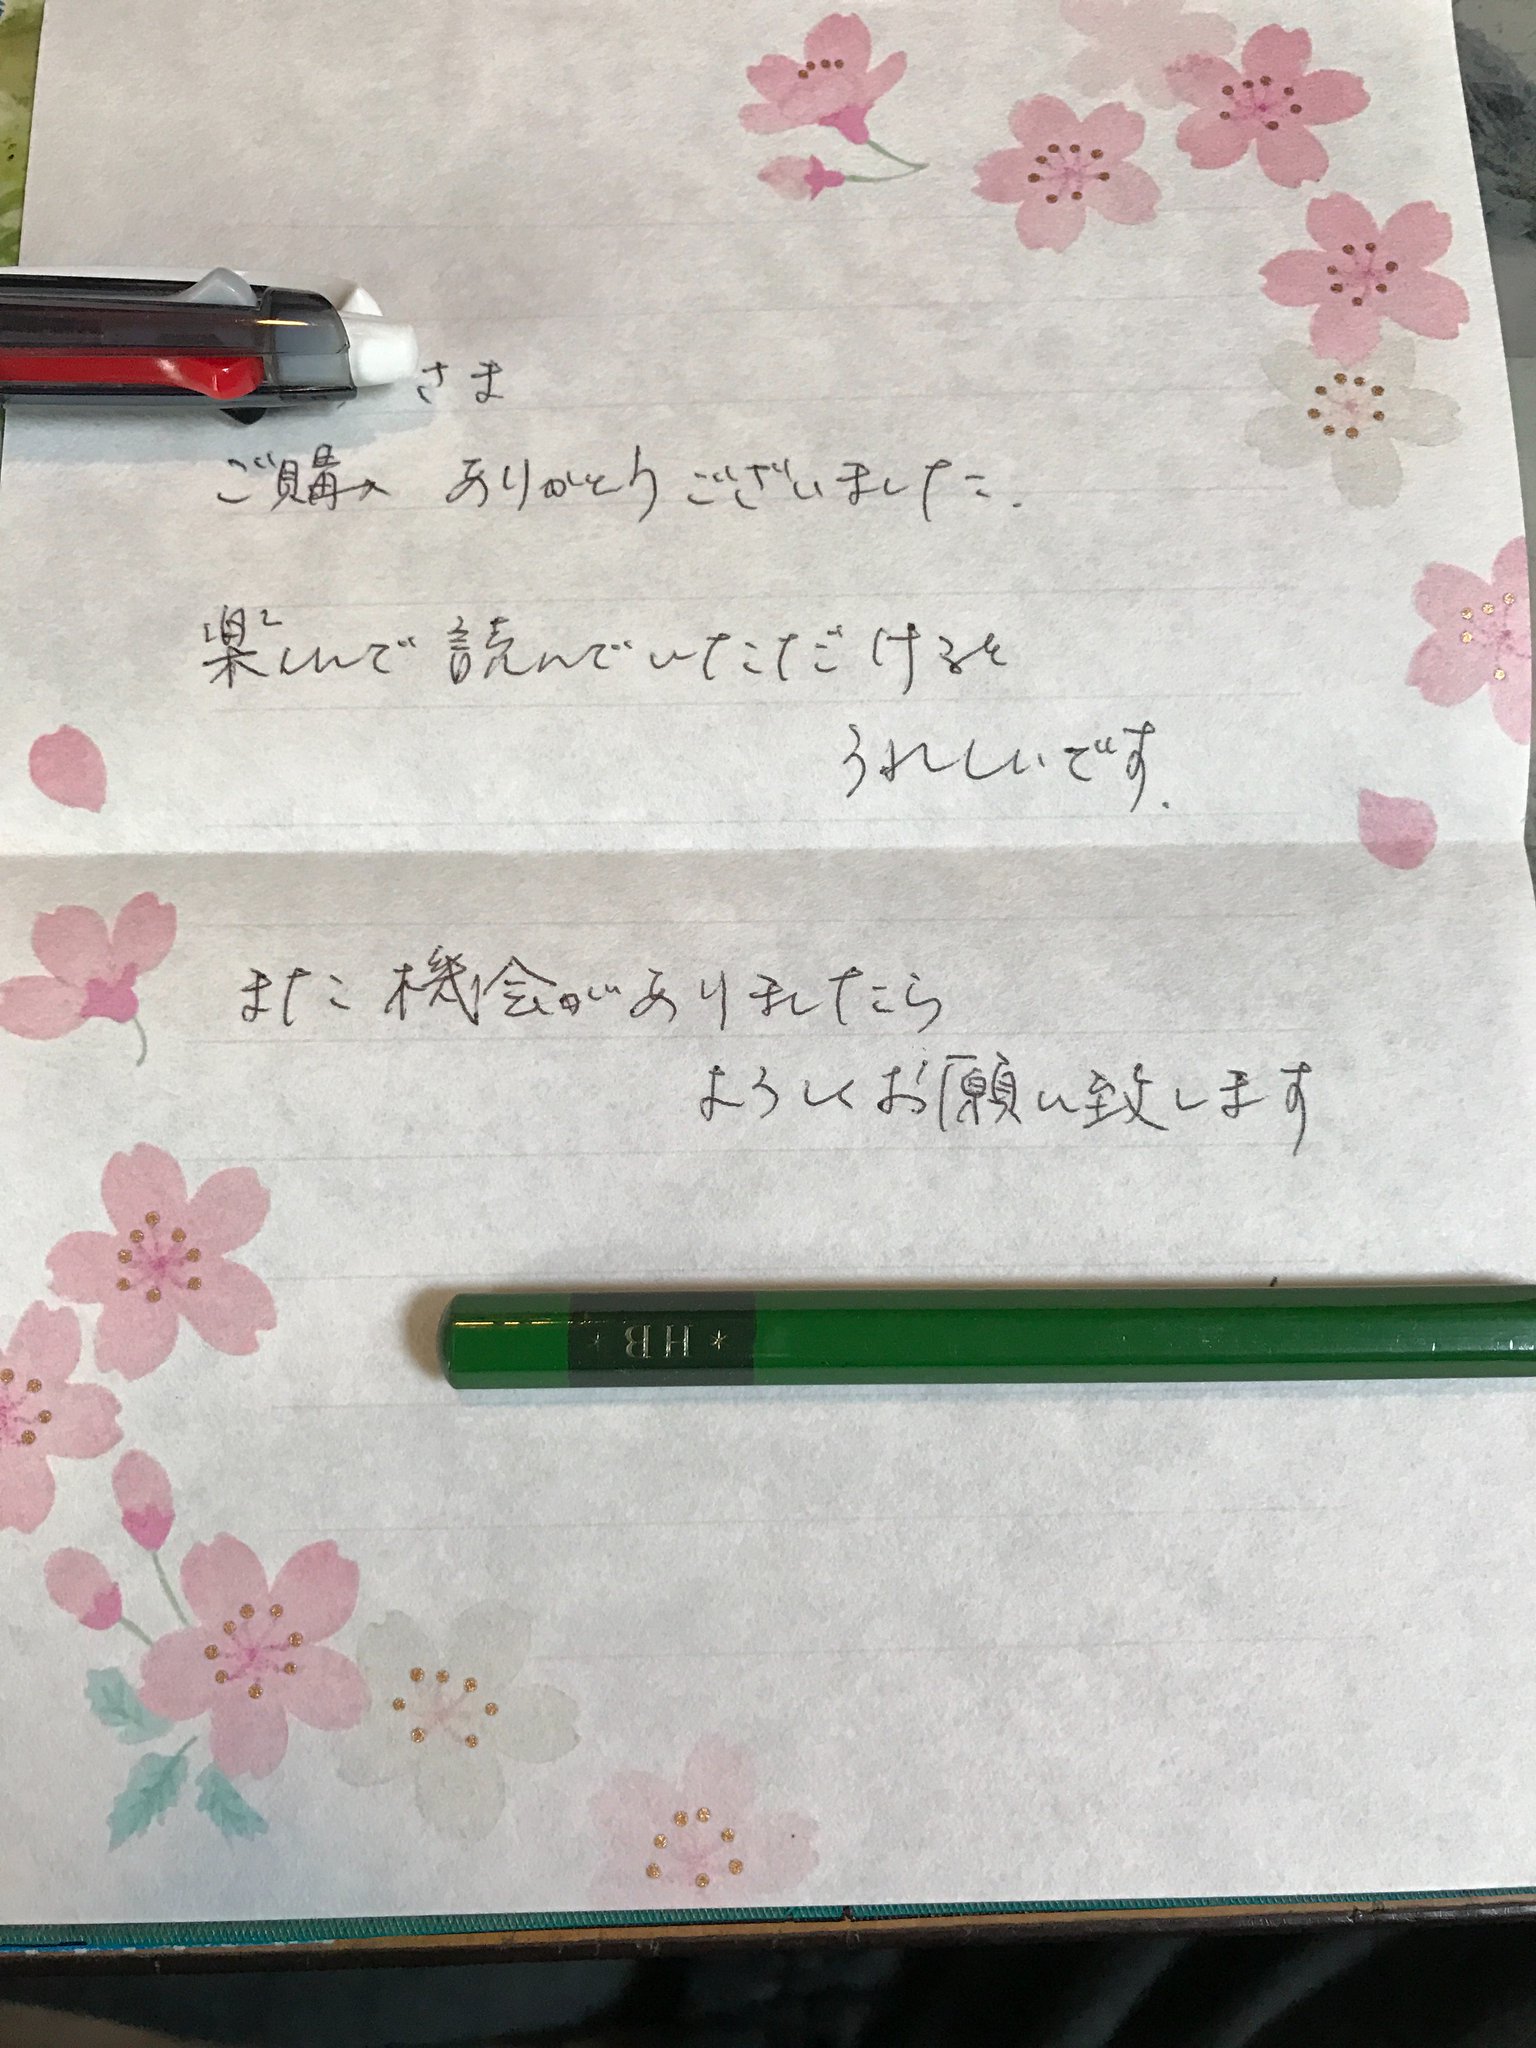 さま
ご購入 ありがとうございました.
楽しんで読んでいただけると
うれしいです.
また機会がありましたら
よろしくお願い致します
* HB *